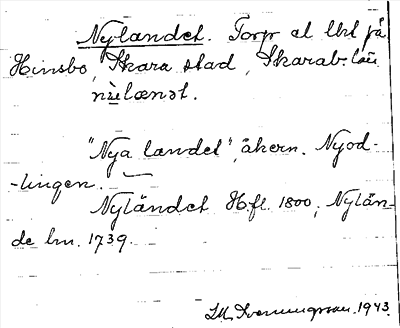 Nylandet. Torp el lht på
Hinsbo, Skara stad, Skarab. län
nùlænət.
"Nya landet", åkern. Nyod-
-lingen.
Nyländet Hfl. 1800; Nylän-
de hm. 1739.
1943.